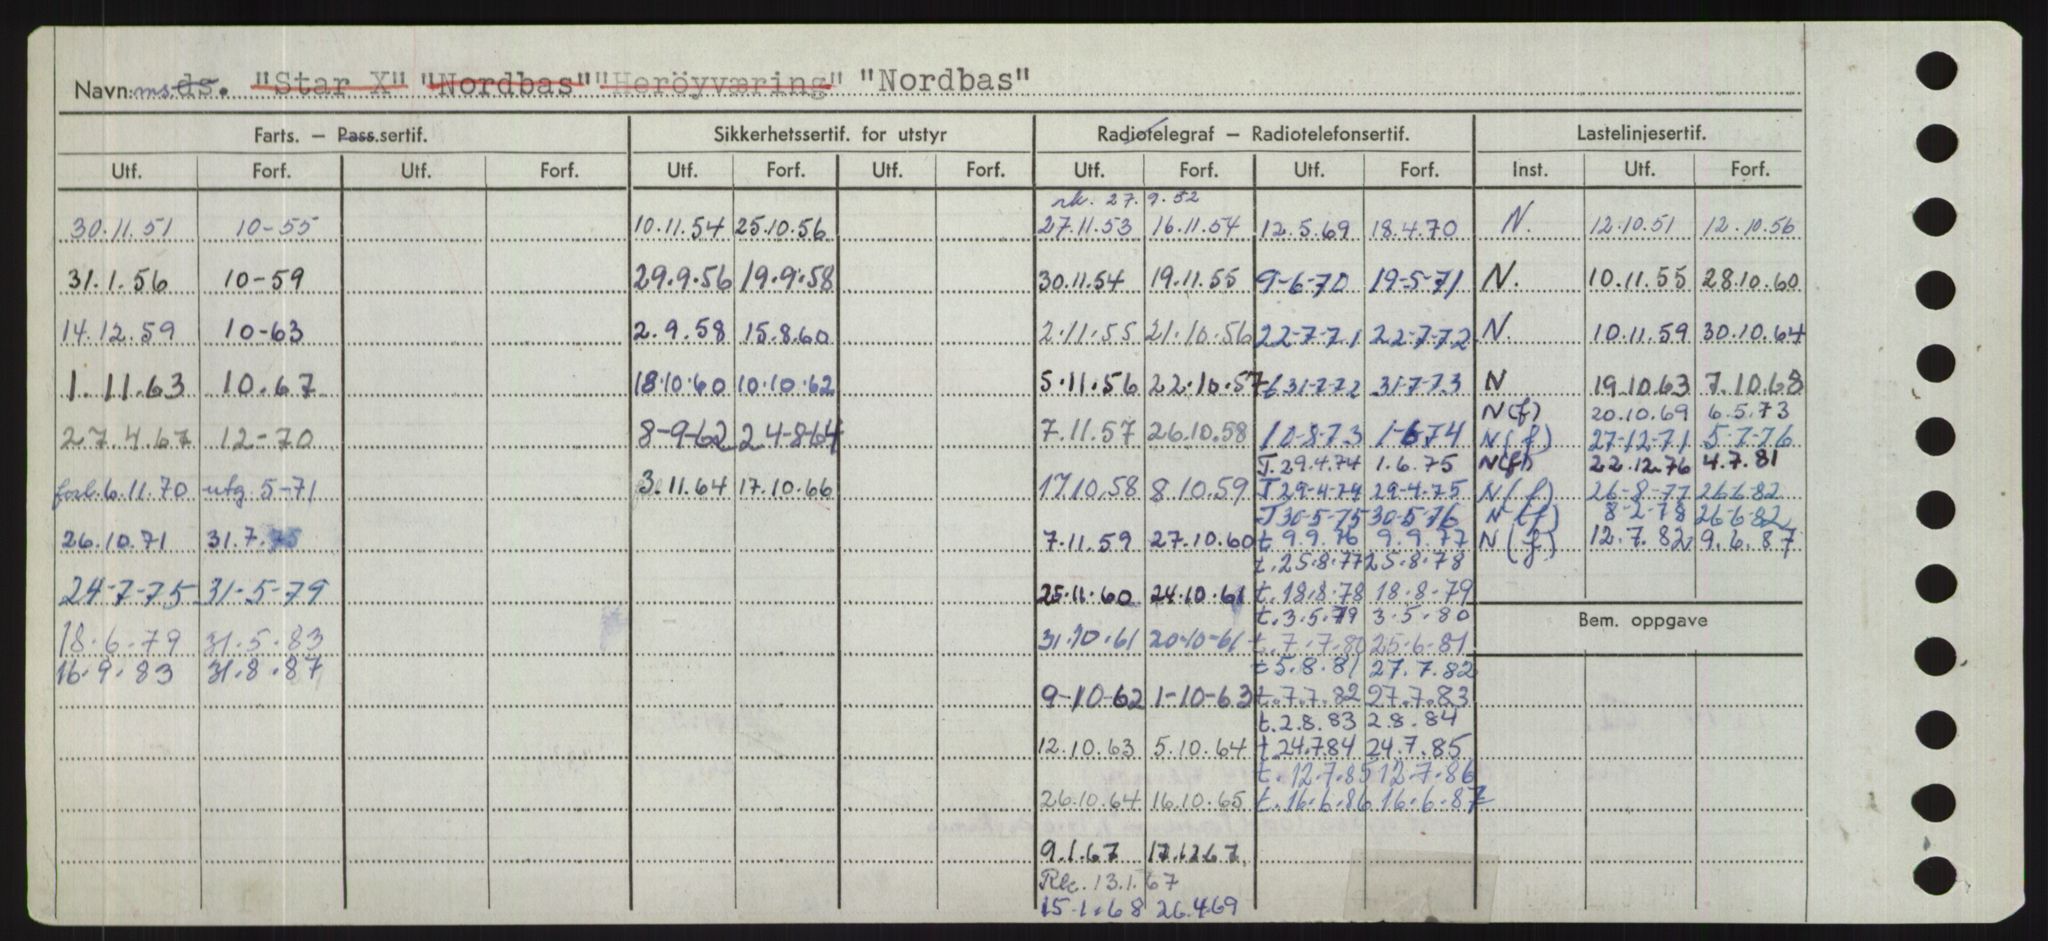 Navn: ms ds. "Star X" "Nordbas" "Heröyværing" "Nordbas"
Farts. — Pass.sertif. Sikkerhetssertif. for utstyr Radiotelegraf — Radiotelefonsertif. Lastelinjesertif.
Utf. Forf. Utf. Forf. Utf. Forf. Utf. Forf. Utf. Forf. Utf. Forf. Inst. Utf. Forf.
27.9.52
30.11.51 10-55 10.11.54 25.10.56 27.11.53 16.11.54 12.5.69 18.4.70 N. 12.10.51 12.10.56
31.1.56 10-59 29.9.56 19.9.58 30.11.54 19.11.55 9-6-70 19-5-71 N. 10.11.55 28.10.60
14.12.59 10-63 2.9.58 15.8.60 2.11.55 21.10.56 22-7-71 22-7-72 N. 10.11.59 30.10.64
1.11.63 10.67 18.10.60 10.10.62 5.11.56 22.10.57 t 31-7-72 31-7-73 N 19.10.63 7.10.68
N(f) 20.10.69 6.5.73
27.4.67 12-70 8-9-62 24-8-64 7.11.57 26.10.58 10-8-73 1-6-74 N(f) 27-12-71 5-7-76
T. 29.4.74 1.6.75 N(f) 22.12.76 4.7.81
forl. 6.11.70 utg. 5-71 3.11.64 17.10.66 17.10.58 8.10.59 T 29-4-74 29-4-75 N(f) 26-8-77 26.6.82
T 30-5-75 30-5-76 N(f) 8-2-78 26-6-82
26.10.71 31.7.75 7.11.59 27.10.60 t 9.9.76 9.9.77 N(f) 12.7.82 9.6.87
t. 25.8.77 25.8.78
24-7-75 31-5-79 25.11.60 24.10.61 t. 18.8.78 18.8-79
t. 3.5.79 3.5.80
Bem. oppgave
18.6.79 31.5.83 31.10.61 20-10-61 t. 7.7.80 25.6.81
16.9.83 31.8.87 t 5.8.81 27.7.82
9-10-62 1-10-63 t. 7.7.82 27.7.83
t. 2.8.83 2.8.84
12.10.63 5.10.64 t. 24.7.84 24.7.85
t. 12.7.85 12.7.86
26.10.64 16.10.65 t. 16.6.86 16.6.87
9.1.67 17.12.67
Rec. 13.1.67
15-1.68 26.4.69